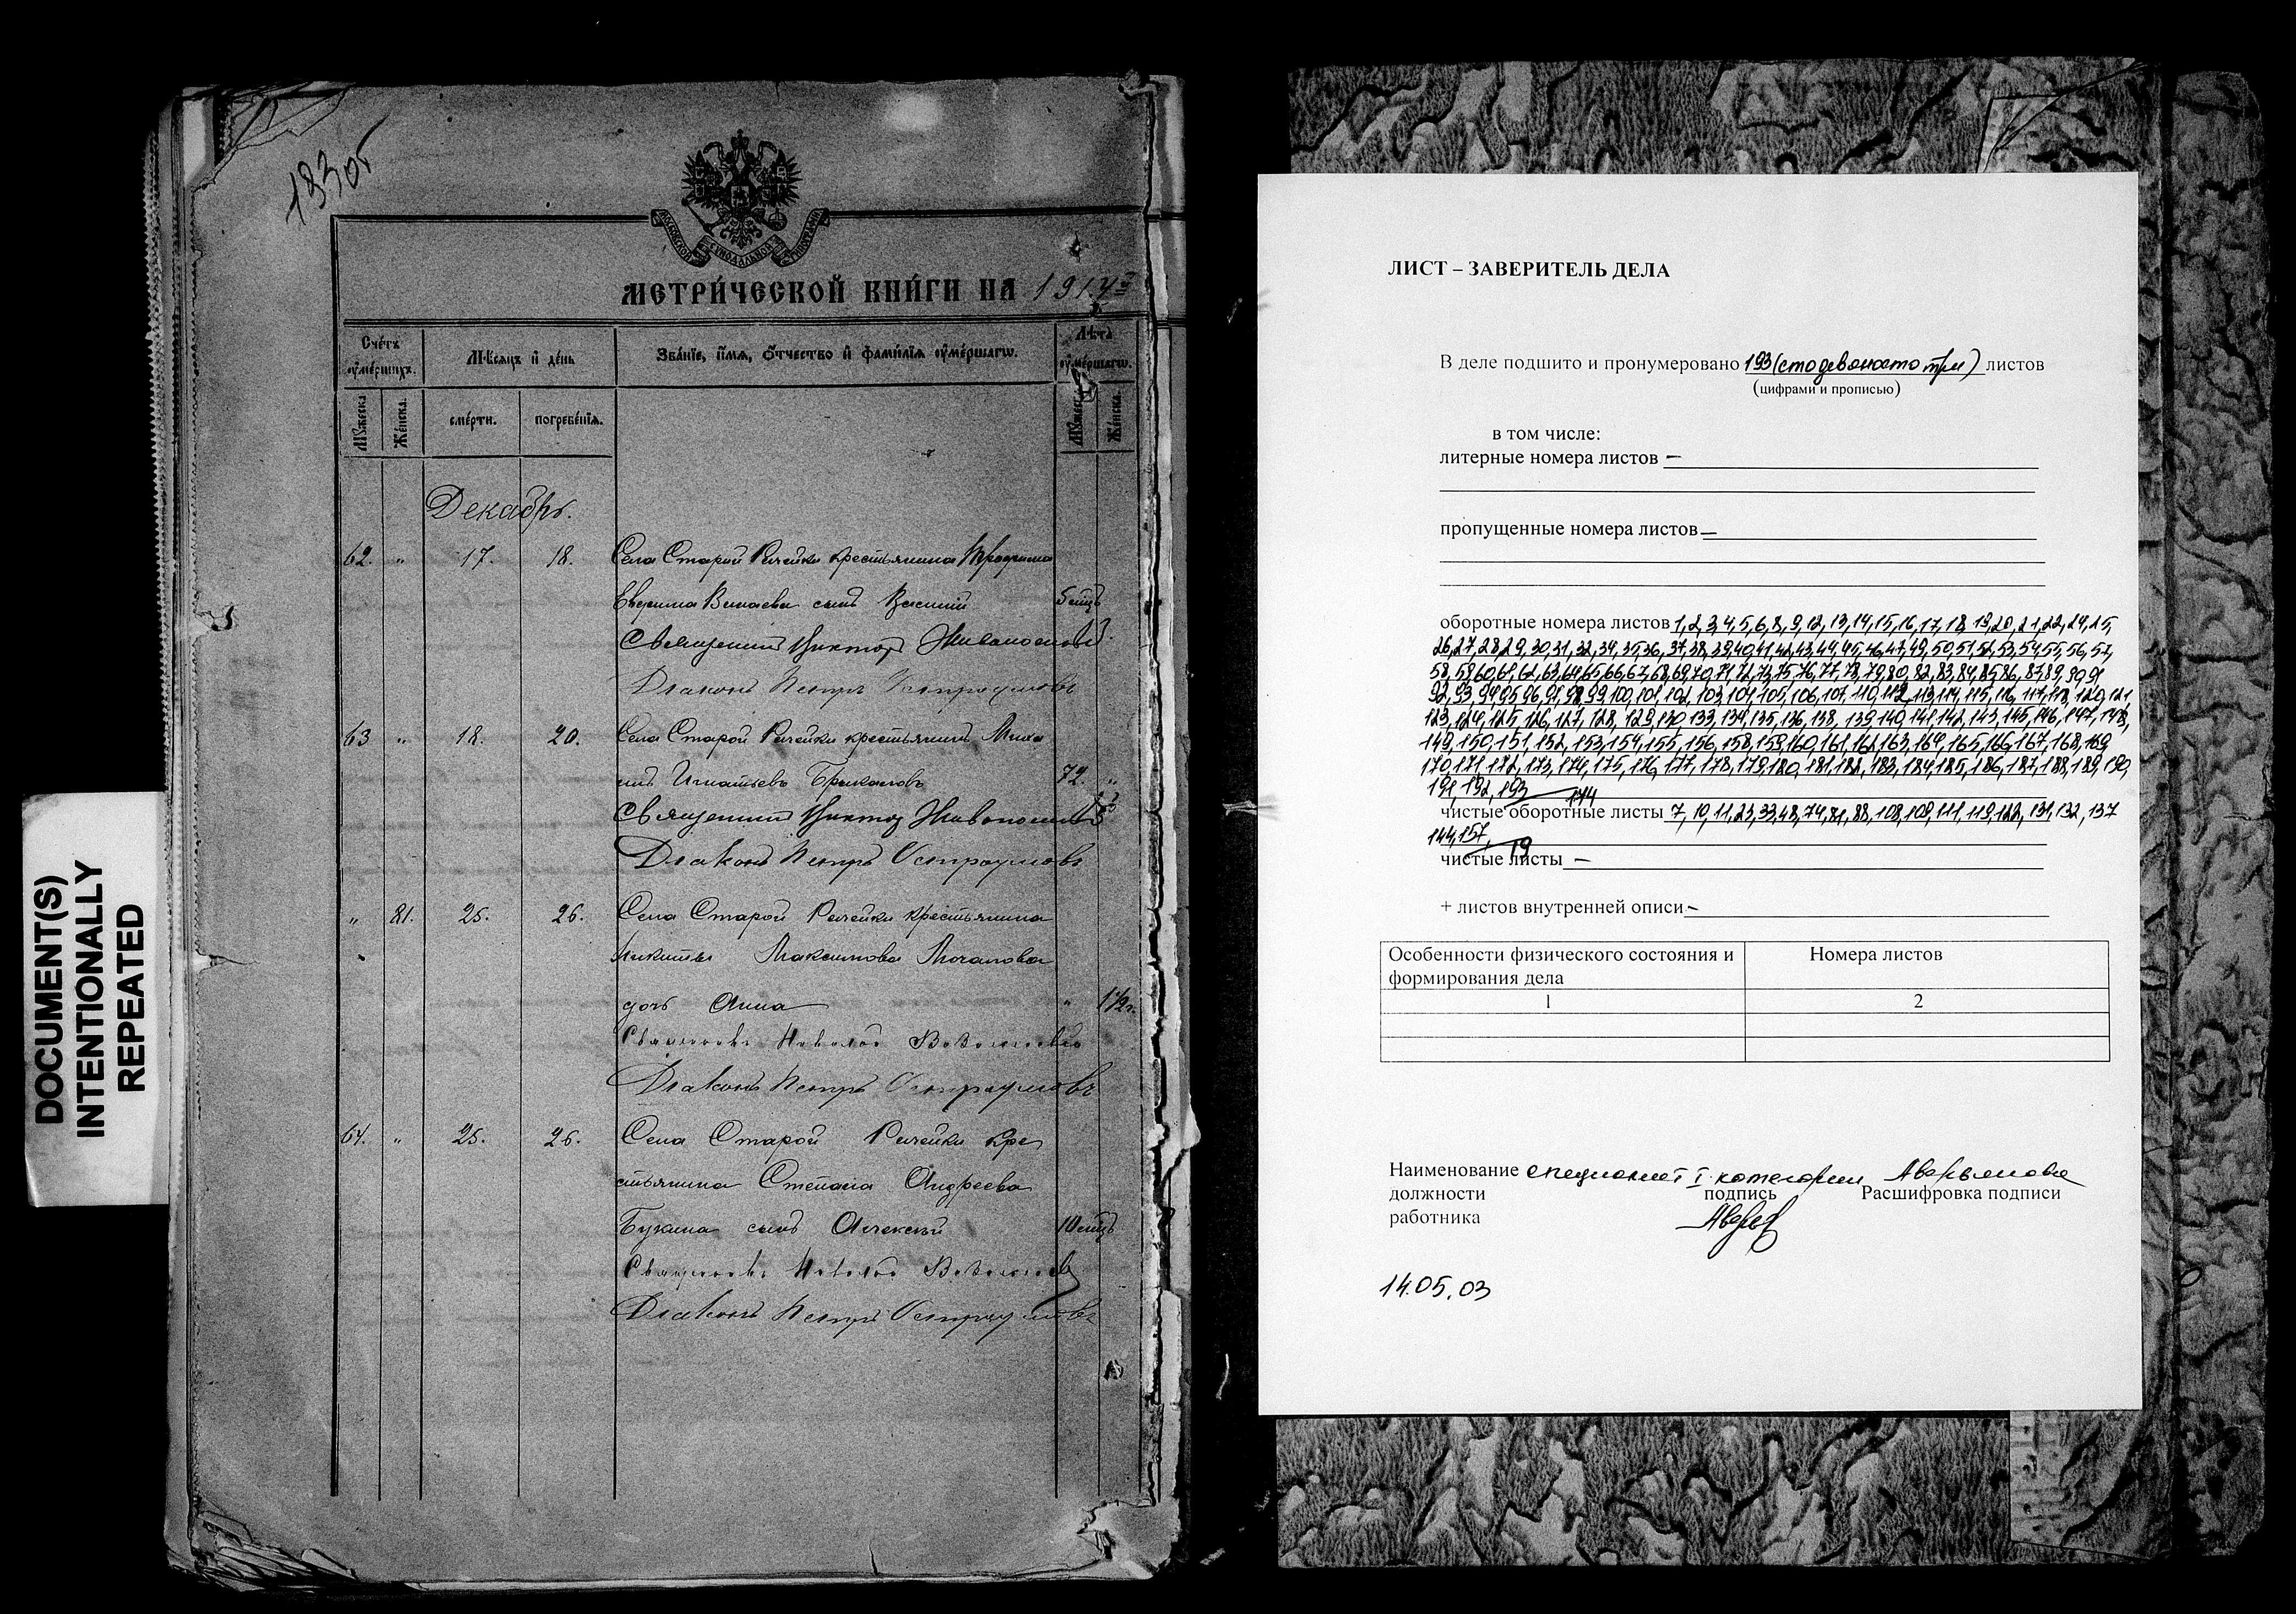 DOCUMENT(S)
INTENTIONALLY
REPEATED
193об
МОСКОВСКОЙ СѴНОДАЛЬНОЙ ТИПОГРАФІИ
МЕТРИ́ЧЕСКОЙ КНИ́ГИ НА 1914
Счётъ ᲂу҆ме́ршихъ.
Мѣсѧцъ и҆ де́нь
Зва́нїе, и҆́мѧ, ѻ҆́тчество и҆ фами́лїѧ ᲂу҆ме́ршагѡ.
Лѣта̀ ᲂу҆ме́ршагѡ.
Мꙋ́жеска
Же́нска.
сме́рти.
погребе́нїѧ.
Мꙋ́жеск
Же́нска.
Декабрь.
62. " 17. 18. Села Старой Рачейки крестьянина Трофима
сынъ Василій 5 мцъ
Священникъ Викторъ Живописцевъ
Діаконъ Петръ Остроумовъ
63 " 18. 20. Села Старой Рачейки крестьянинъ Миха
илъ Игнатьевъ 72. "
Священникъ Викторъ Живописцевъ
Діаконъ Петръ Остроумовъ
" 81. 25. 26. Села Старой Рачейки крестьянина
Никиты Максимова Мочалова
дочь Анна " 1 1/2 г.
Священникъ
Діаконъ Петръ Остроумовъ
64. " 25. 26. Села Старой Рачейки кре
стьянина Степана Андреева
Букина сынъ Алексѣй 10 мцъ
Священникъ
Діаконъ Петръ Остроумовъ
ЛИСТ – ЗАВЕРИТЕЛЬ ДЕЛА
В деле подшито и пронумеровано 193 (сто девяносто три) листов
(цифрами и прописью)
в том числе:
литерные номера листов –
пропущенные номера листов –
оборотные номера листов 1,2,3,4,5,6,8,9,12,13,14,15,16,17,18,19,20,21,22,24,25,
26,27,28,29,30,31,32,34,35,36,37,38,39,40,41,42,43,44,45,46,47,49,50,51,52,53,54,55,56,57,
58,59,60,61,62,63,64,65,66,67,68,69,70,71,72,73,75,76,77,78,79,80,82,83,84,85,86,87,89,90,91
92,93,94,95,96,97,98,99,100,101,102,103,104,105,106,107,110,112,113,114,115,116,117,118,120,121,
123,124,125,126,127,128,129,130,133,134,135,136,138,139,140,141,142,143,145,146,147,148,
149,150,151,152,153,154,155,156,158,159,160,161,162,163,164,165,166,167,168,169,
170,171,172,173,174,175,176,177,178,179,180,181,182,183,184,185,186,187,188,189,190,
191,192,193 174
чистые оборотные листы 7,10,11,23,33,48,74,81,88,108,109,111,119,122,131,132,137
144,157, 19
чистые листы –
+ листов внутренней описи –
Особенности физического состояния и формирования дела
Номера листов
1
2
Наименование специалист I категории Аверьянова
должности подпись Расшифровка подписи
работника
14.05.03